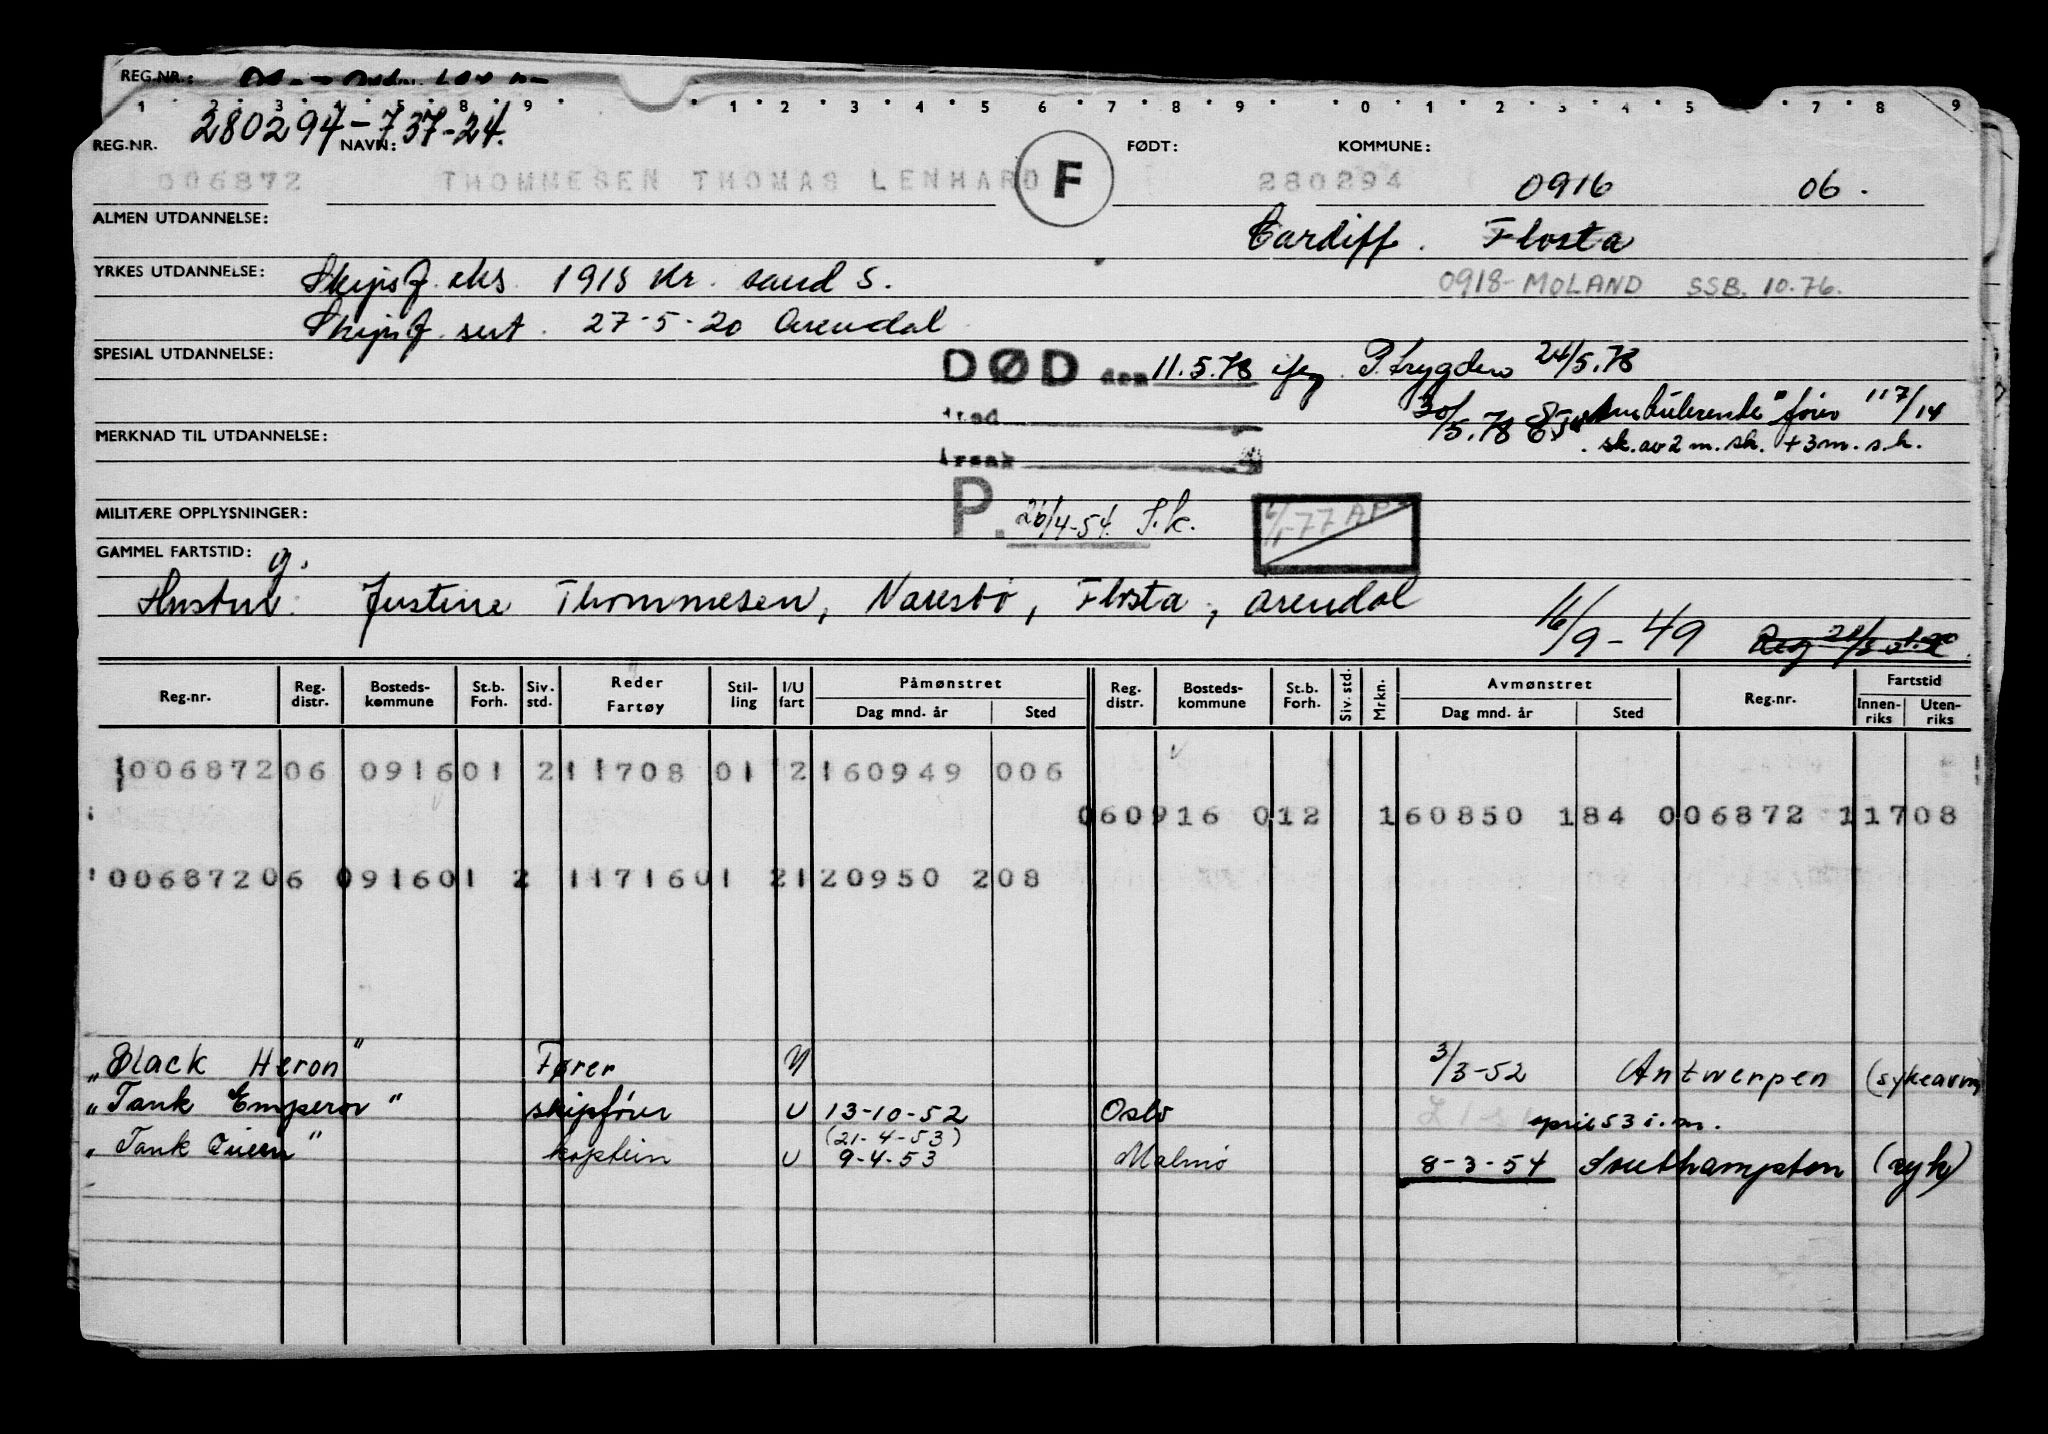 REG.NR.:
1 2 3 4 5 8 9 1 2 3 4 5 6 7 8 9 0 1 2 3 4 5 7 8 9
280294-737-24.
REG.NR. NAVN: FØDT: KOMMUNE:
006872 THOMMESEN THOMAS LENHARD F 280294 0916 06.
ALMEN UTDANNELSE: Cardiff. Flosta
YRKES UTDANNELSE: Skipsf. eks. 1918 Kr. sand S. 0918-MOLAND SSB. 10.76.
Skipsf. sert. 27-5-20 Arendal
SPESIAL UTDANNELSE: DØD den 11.5.78 P.trygden 24/5.78
sted 30/5.78 fører 117/14
MERKNAD TIL UTDANNELSE: sk. av 2 m. sk. + 3 m. s.k.
årsak
MILITÆRE OPPLYSNINGER: P. 26/4-54. S.k. 77 AP
GAMMEL FARTSTID: g.
Hustru: Justine Thommesen, Narestø, Flosta, Arendal
16/9-49
Reg.nr. Reg. distr. Bosteds-kommune St.b. Forh. Siv. std. Reder Fartøy Stil-ling I/U fart Påmønstret Dag mnd. år Sted Reg. distr. Bosteds-kommune St.b. Forh. Siv. std. Mrkn. Avmønstret Dag mnd. år Sted Reg.nr. Fartstid Innen-riks Uten-riks
100687206 091601 211708 01 2160949 006
060916 012 160850 184 006872 11708
100687206 091601 2 1171601 2120950 208
"Black Heron" Fører U 3/3-52 Antwerpen (sykeavm)
"Tank Emperor" skipsfører U 13-10-52 Oslo april 53 i.m.
(21-4-53)
"Tank Queen" kaptein U 9-4-53 Malmø 8-3-54 Southampton (syk)